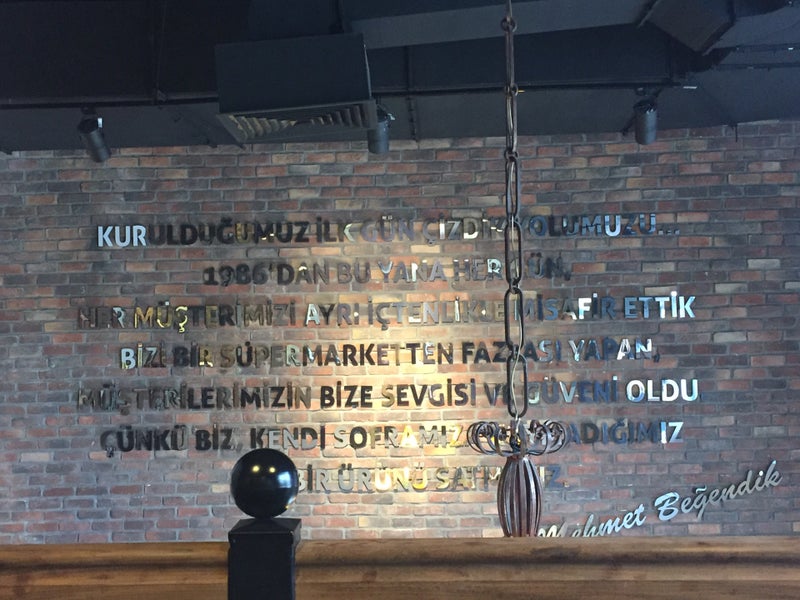 KURULDUĞUMUZ İLK GÜN ÇİZDİK YOLUMUZU...
1986'DAN BU YANA HER GÜN,
HER MÜŞTERİMİZİ AYRI İÇTENLİKLE MİSAFİR ETTİK
BİZİ BİR SÜPERMARKETTEN FAZLASI YAPAN,
MÜŞTERİLERİMİZİN BİZE SEVGİSİ VE GÜVENİ OLDU.
ÇÜNKÜ BİZ, KENDİ SOFRAMIZA
BİR ÜRÜNÜ SATMAYIZ.
Mehmet Beğendik